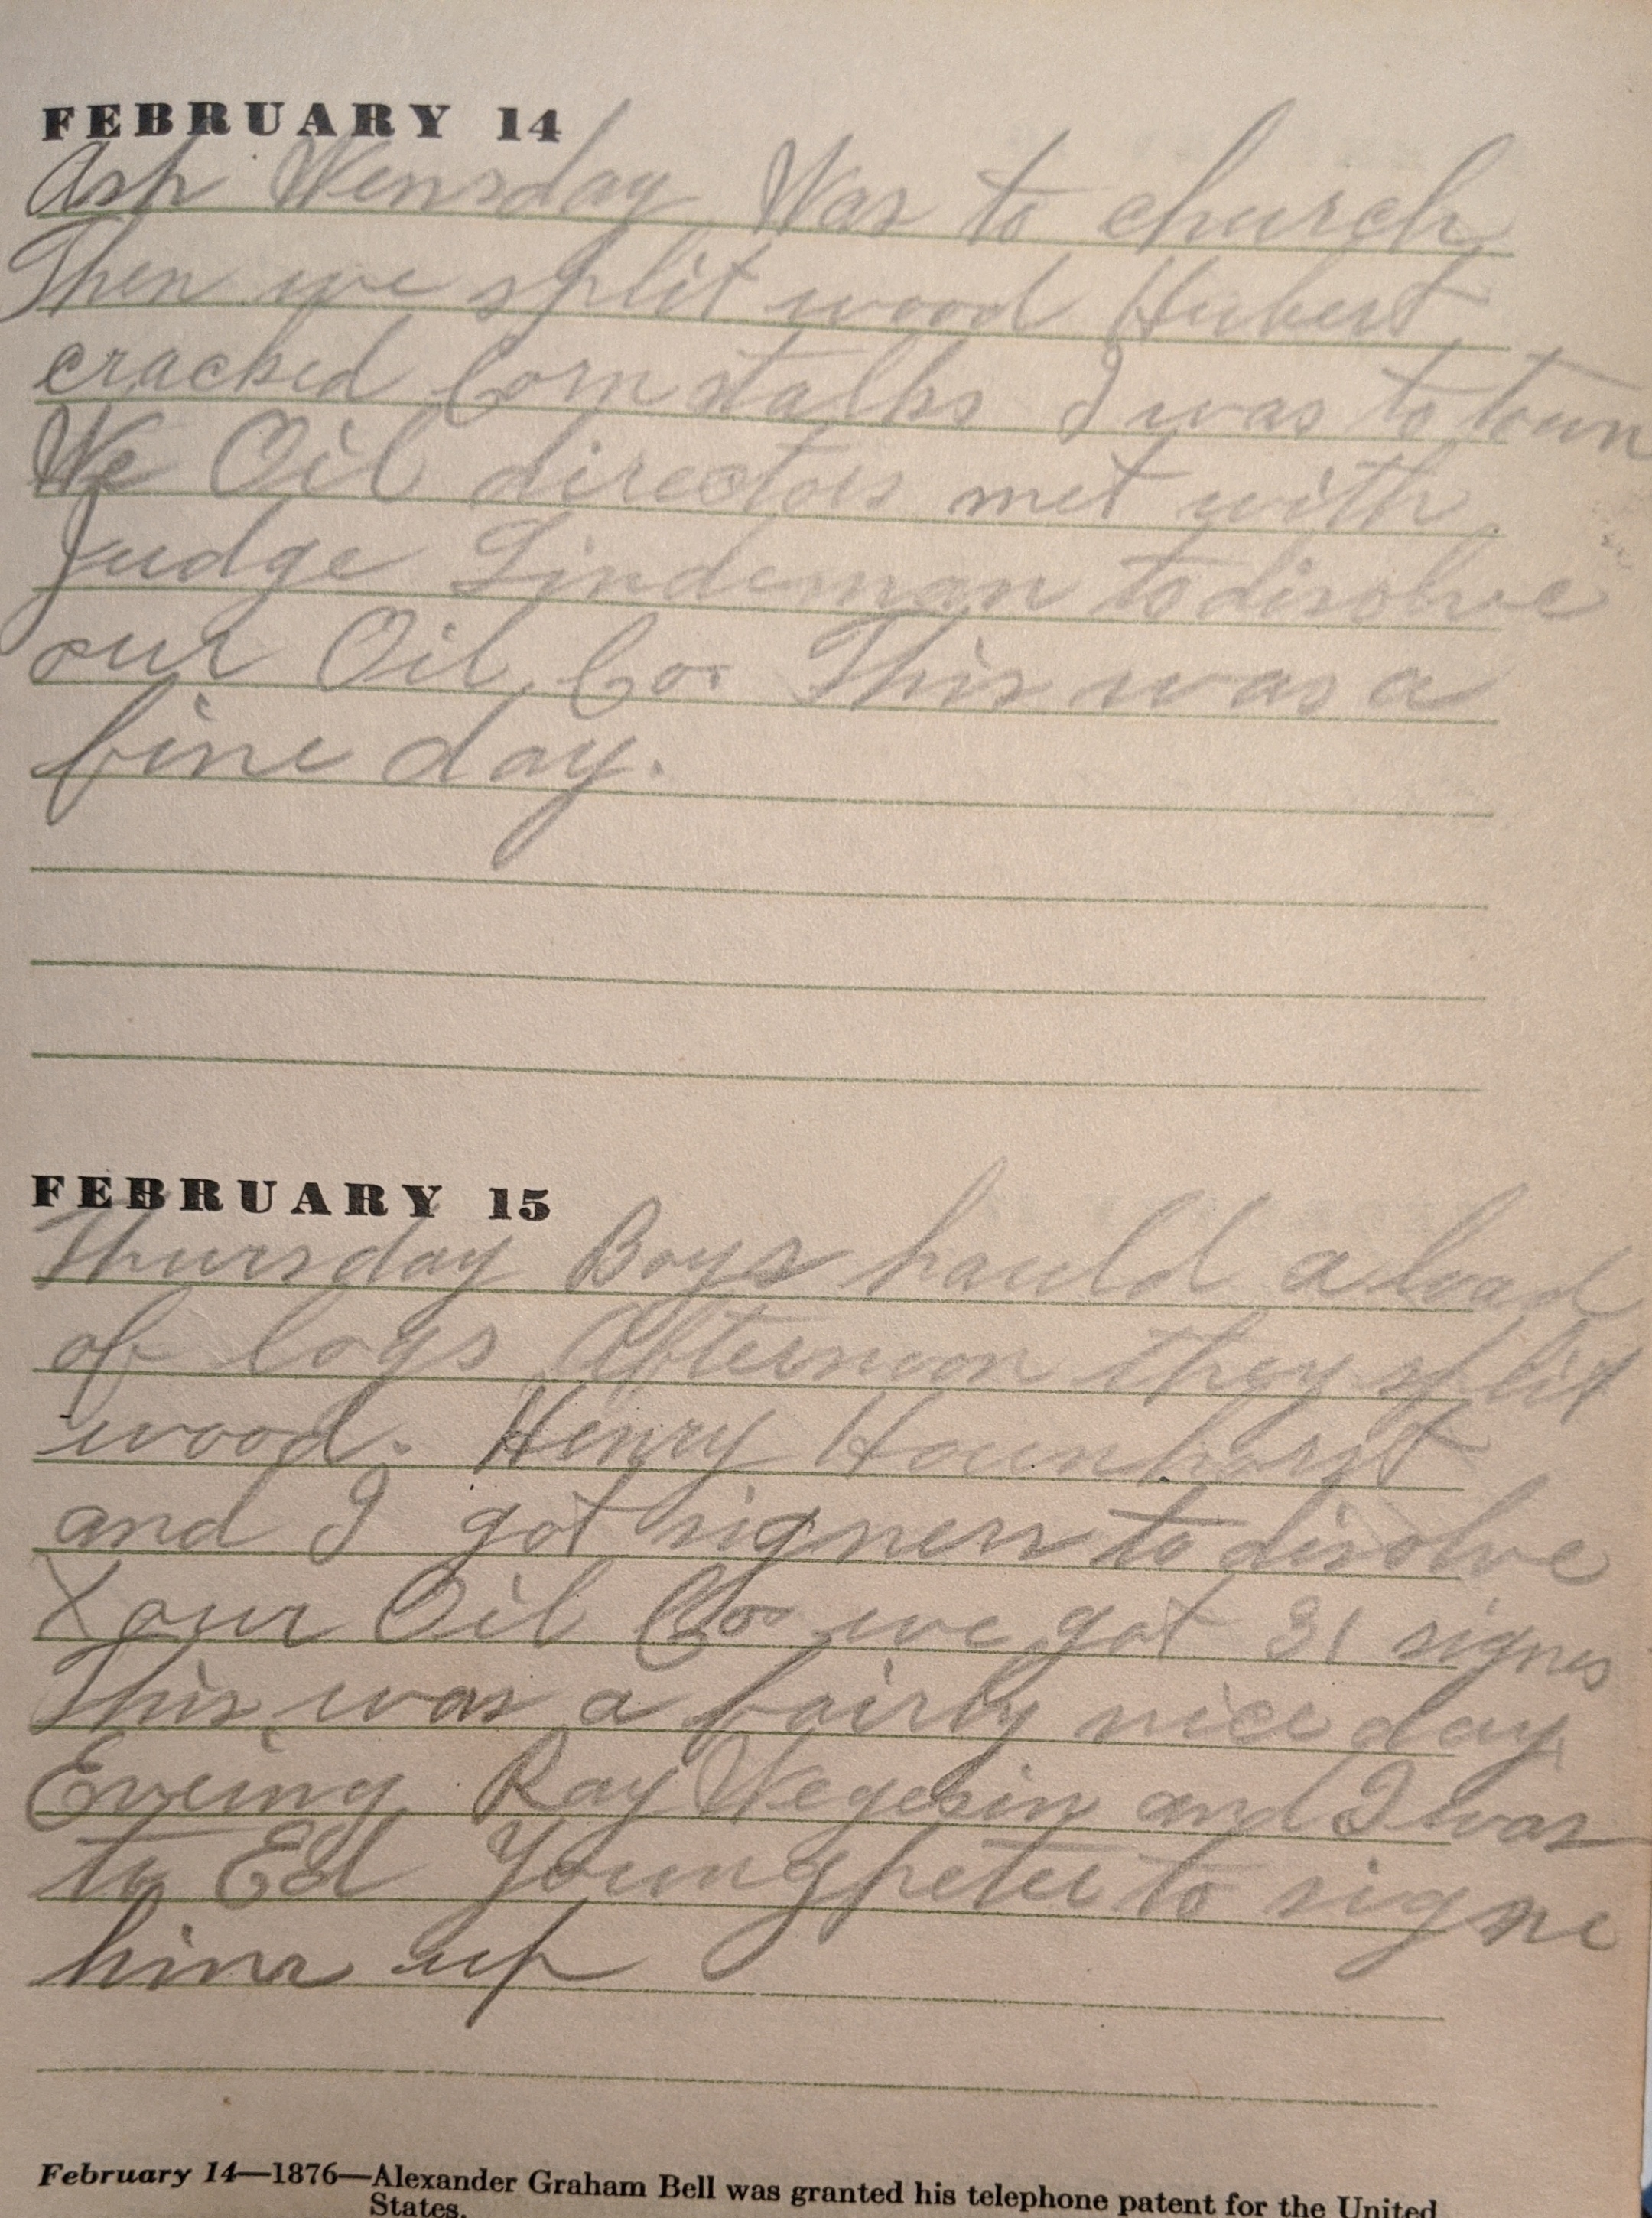 FEBRUARY 14
Ash Wensday Was to church
Then we split wood Hubert
cracked Corn stalks I was to town
We Oil directors met with
Judge Lindeman to disolve
our Oil Co. This was a
fine day.
FEBRUARY 15
Thursday Boys hauld a load
of logs Afternoon they split
wood. Henry Hounhorst
and I got signers to disolve
our Oil Co we got 31 signes
This was a fairly nice day
Eveing Ray Wegesin and I was
to Ed Youngpeter to signe
him up
February 14—1876—Alexander Graham Bell was granted his telephone patent for the United
States.